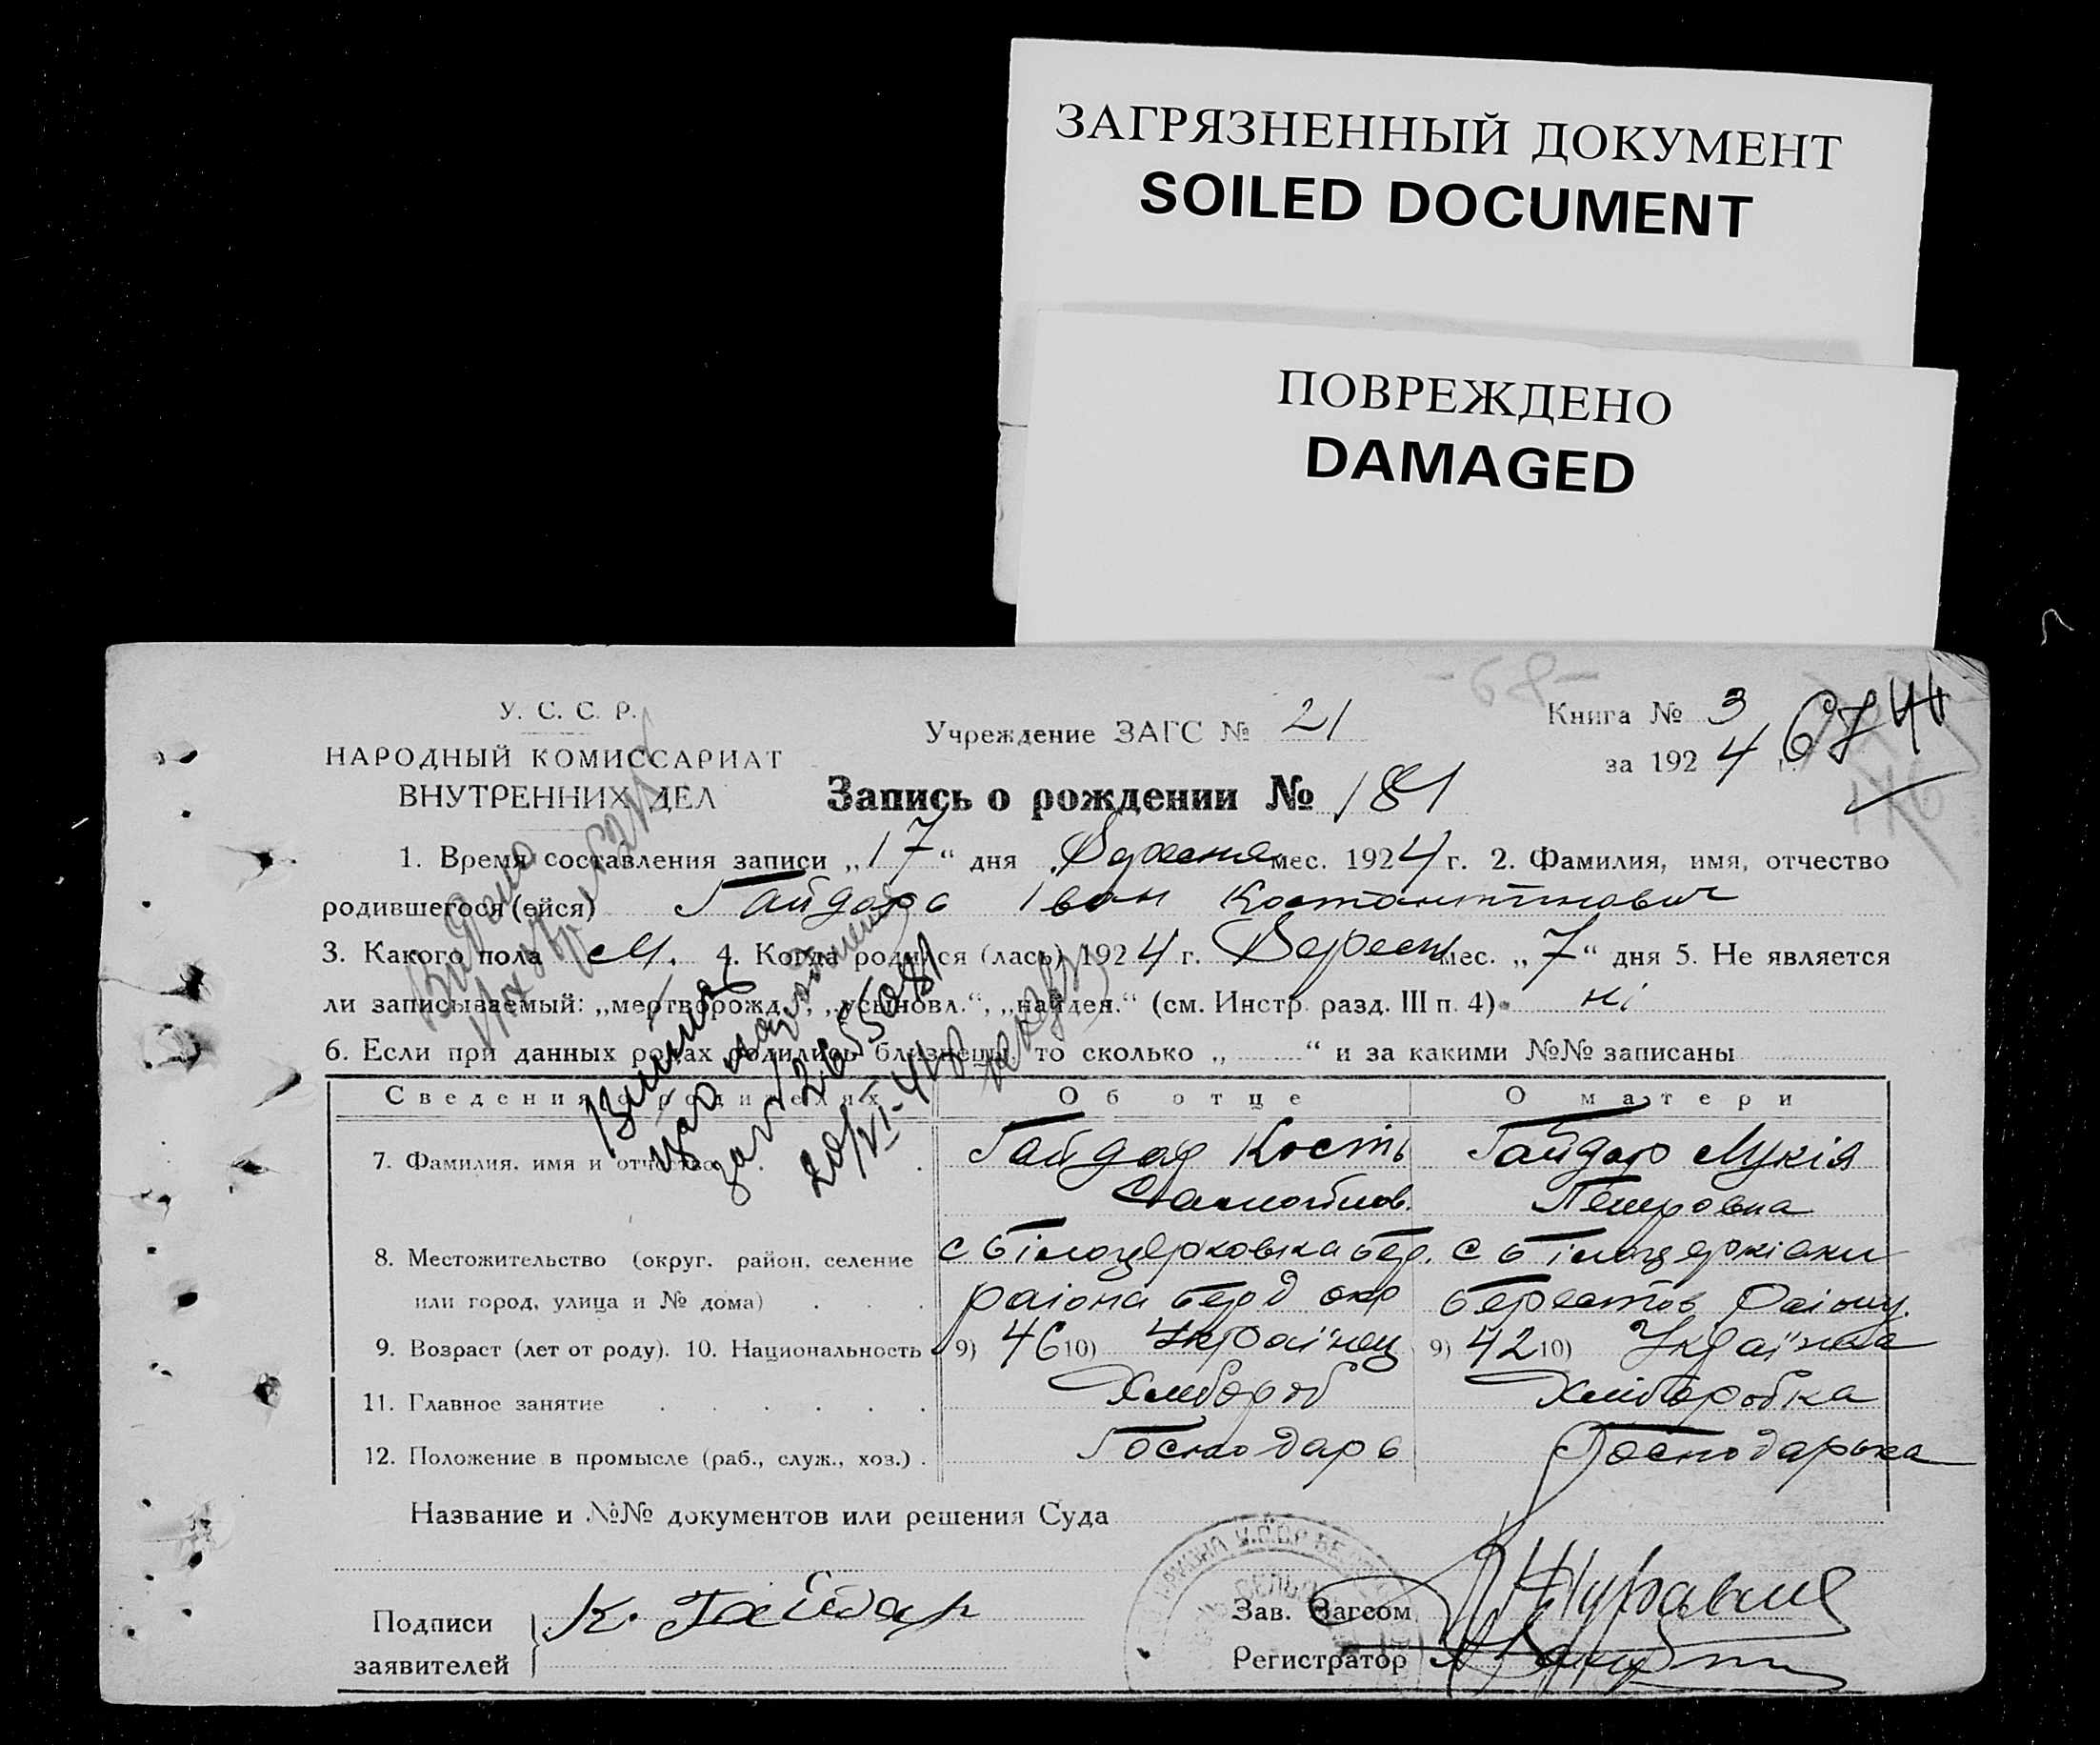 ЗАГРЯЗНЕННЫЙ ДОКУМЕНТ
SOILED DOCUMENT
ПОВРЕЖДЕНО
DAMAGED
-68-
У. С. С. Р.
НАРОДНЫЙ КОМИССАРИАТ
ВНУТРЕННИХ ДЕЛ
Учреждение ЗАГС № 21
Книга № 3
за 1924 г.
6744
176
Запись о рождении № 181
1. Время составления записи „17“ дня Вересня мес. 1924 г. 2. Фамилия, имя, отчество
родившегося (ейся) Гайдарь Іван Костантинович
3. Какого пола М. 4. Когда родился (лась) 1924 г. Вересн мес. „7“ дня 5. Не является
ли записываемый: „мертворожд.“, „усыновл.“, „найден.“ (см. Инстр. разд. III п. 4) ні
6. Если при данных родах родились близнецы, то сколько „ “ и за какими №№ записаны
Сведения о родителях Об отце О матери
7. Фамилия, имя и отчество Гайдар Кость Гайдар Лукія
Самойлов. Петровна
8. Местожительство (округ, район, селение с Білоцерковка Бер. с Білоцерківки
или город, улица и № дома) раіона Берд окр Берестов Раіону.
9. Возраст (лет от роду). 10. Национальность 9) 46 10) Украінец 9) 42 10) Українка
11. Главное занятие Хлібороб Хліборобка
12. Положение в промысле (раб., служ., хоз.) Господарь Господарька
Название и №№ документов или решения Суда
Подписи
заявителей
К. Гайдар
Зав. Загсом
Регистратор